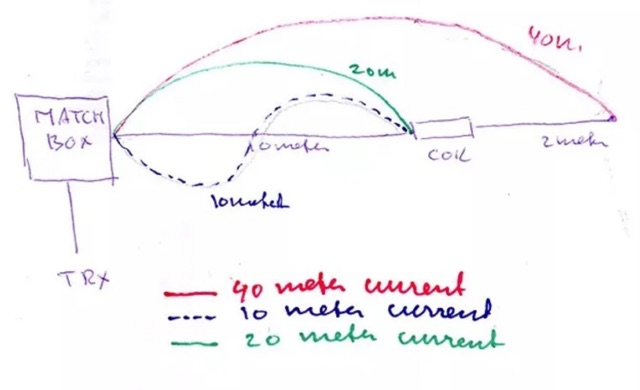 40m.
20m
MATCH
BOX
10 meter
COIL
2 meter
10 meter
TRX
40 meter current
10 meter current
20 meter current